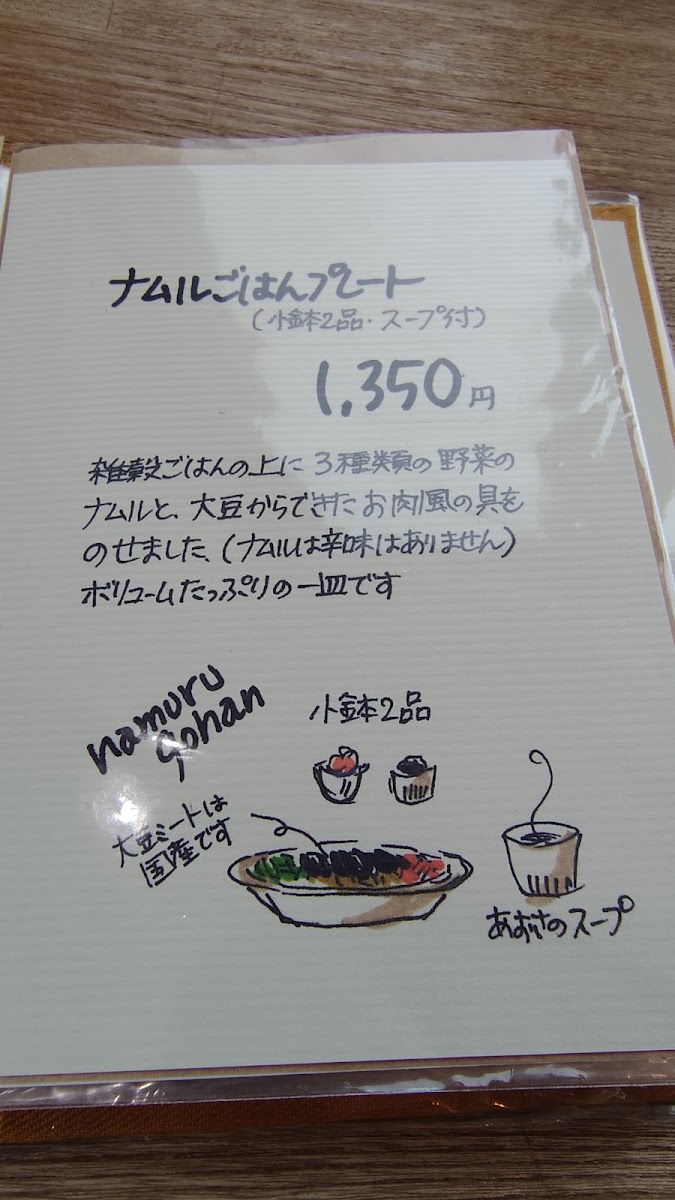 ナムルごはんプレート
(小鉢2品・スープ付)
1,350円
雑穀ごはんの上に3種類の野菜の
ナムルと、大豆からできたお肉風の具を
のせました。(ナムルは辛味はありません)
ボリュームたっぷりの一皿です
namuru
gohan
小鉢2品
大豆ミートは
国産です
あおさのスープ